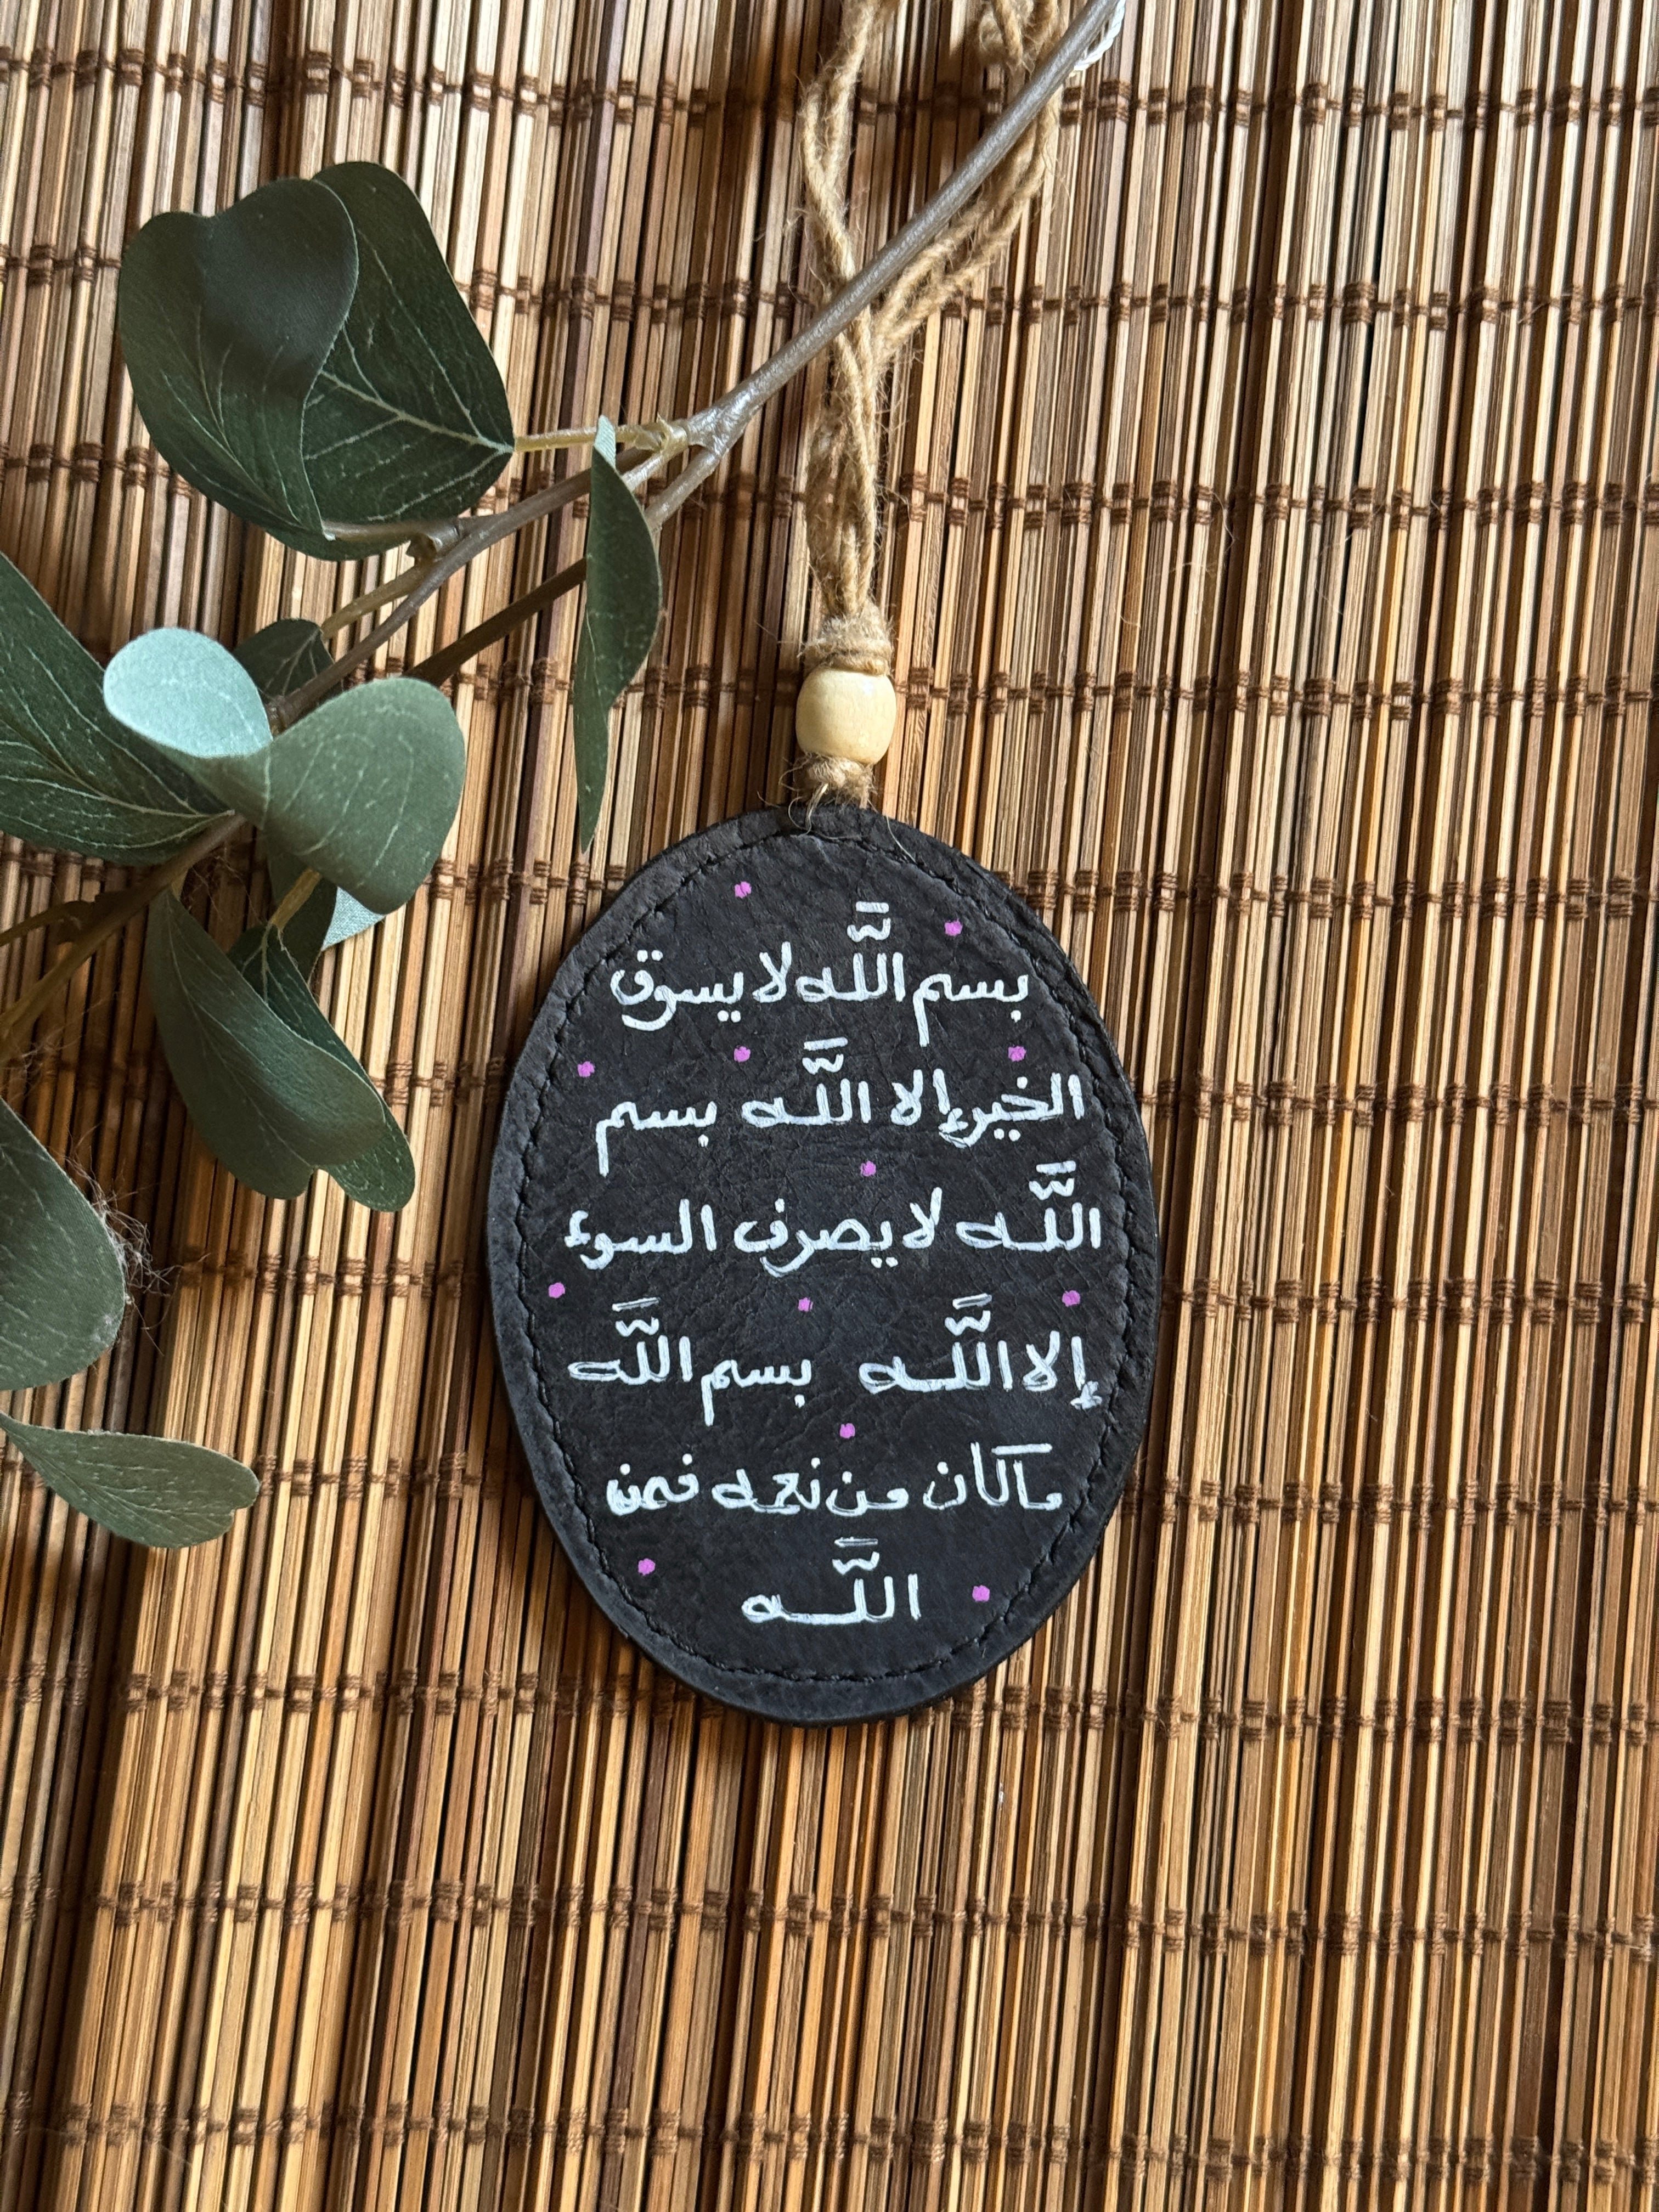 بسم اللَّه لا يسوق
الخير إلا اللَّه بسم
اللَّه لا يصرف السوء
إلا اللَّه بسم اللَّه
ماكان من نعمه فمن
اللَّه